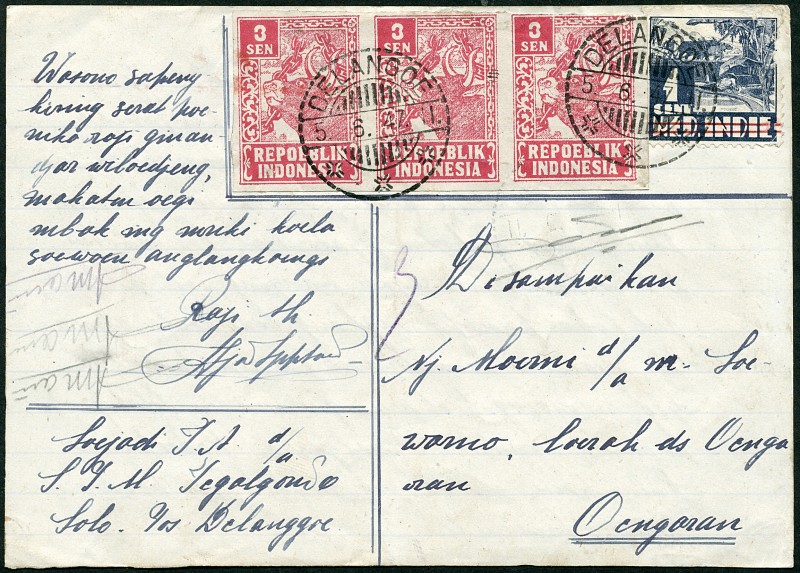 3
SEN
REPOEBLIK
INDONESIA
3
SEN
REPOEBLIK
INDONESIA
3
SEN
REPOEBLIK
INDONESIA
1
SEN
NED.INDIE
DELANGOE
5 6. 47
DELANGOE
5 6
Wosono sapeng
kiring serat poe-
niko raji ginan-
djar wiloedjeng,
makatên oegi
mbak ing mriki koela
soewoen anglangkoengi
Disampaikan
Nj. Moerni d/a m. Soe-
worno, Loerah ds Oenga
ran
Oengaran
Soejadi T.A. d/a
S.T.M. Tegalgondo
Solo. Pos Delanggoe